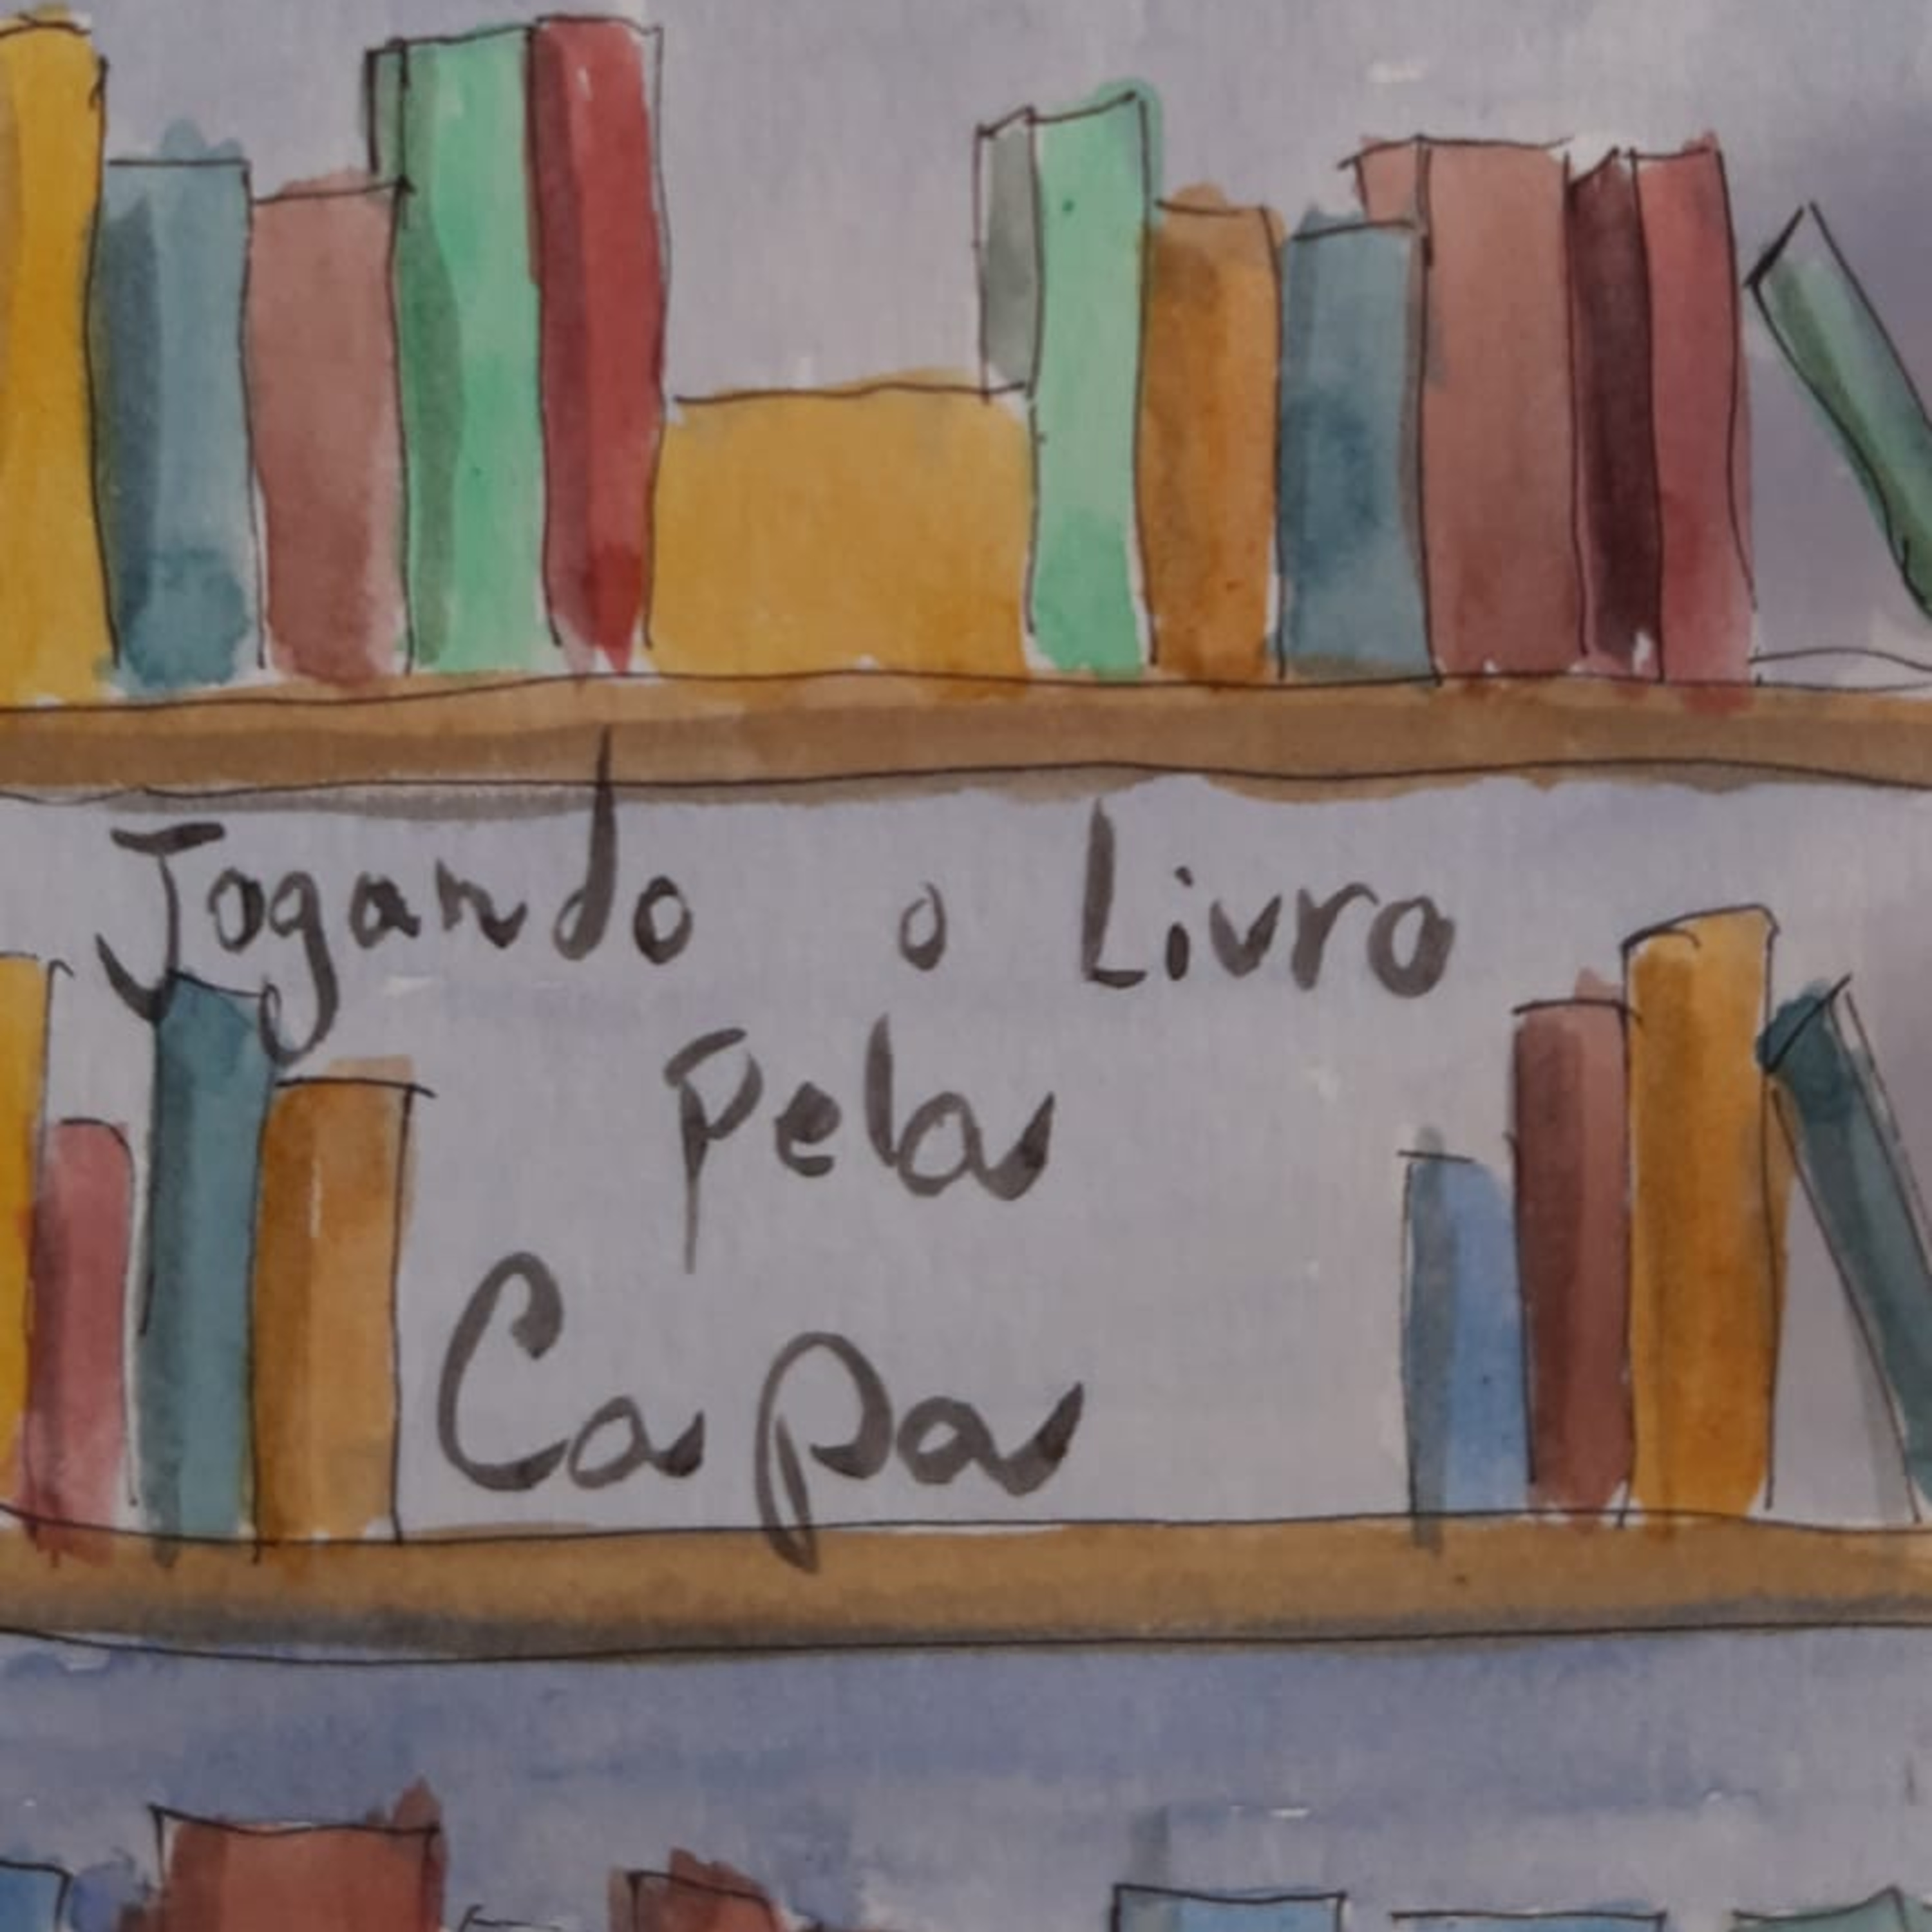 Jogando o Livro
pela
Capa